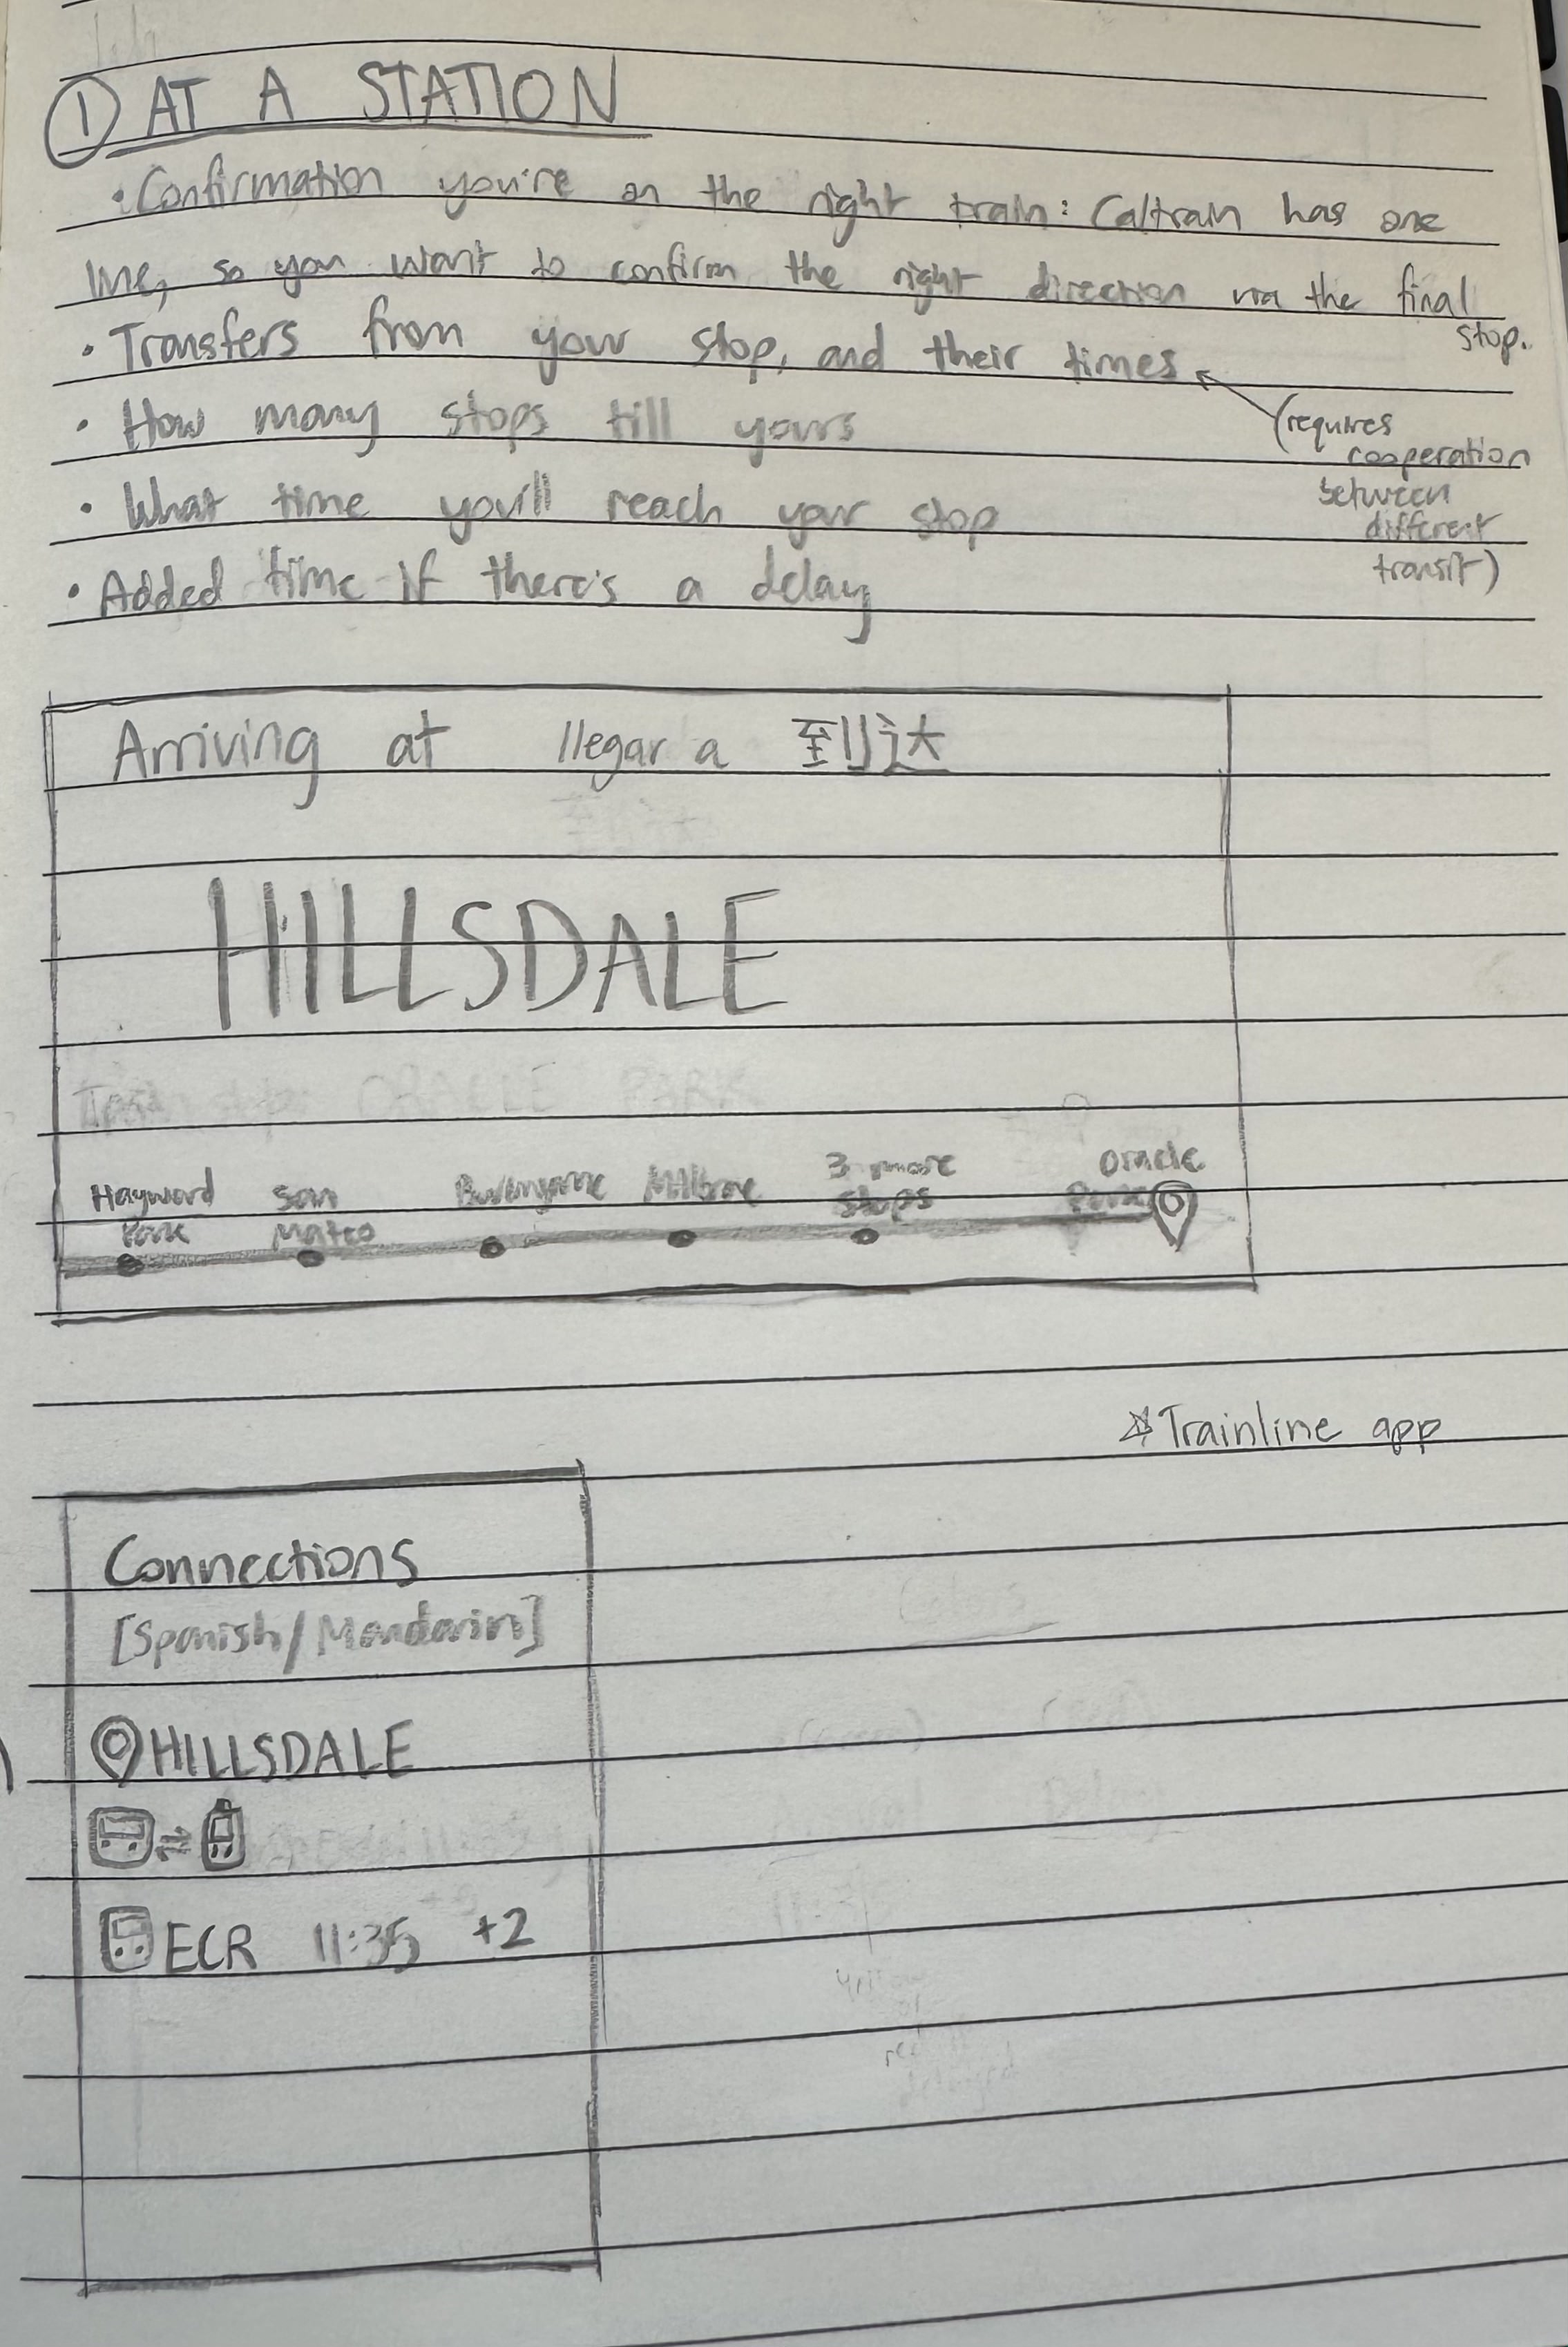 ① AT A STATION
• Confirmation you're on the right train: Caltrain has one
line, so you want to confirm the right direction via the final
stop.
• Transfers from your stop, and their times
(requires
cooperation
between
different
transit)
• How many stops till yours
• What time you'll reach your stop
• Added time if there's a delay
Arriving at llegar a 到达
HILLSDALE
ORACLE PARK
Hayward
Park
San
Mateo
Burlingame
Millbrae
3 more
stops
Oracle
Park
☆ Trainline app
Connections
[Spanish/Mandarin]
HILLSDALE
⇌
ECR 11:35 +2